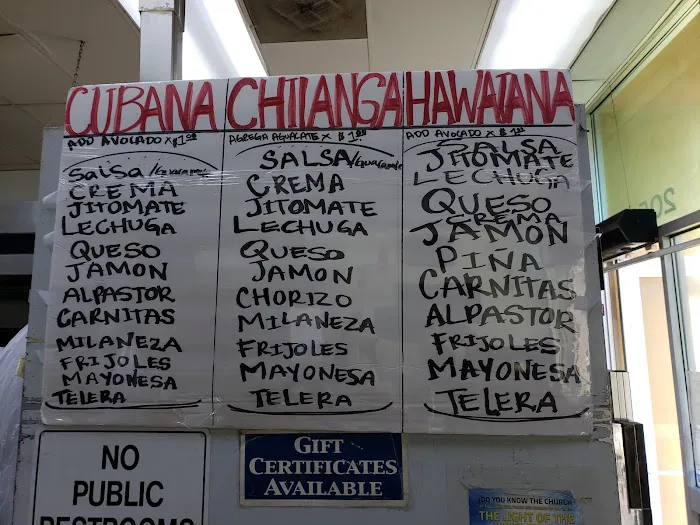 CUBANA
ADD AVOLADO x $1.00
SALSA/Guacamole
CREMA
JITOMATE
LECHUGA
QUESO
JAMON
ALPASTOR
CARNITAS
MILANEZA
FRIJOLES
MAYONESA
TELERA
CHILANGA
AGREGA AGUALATE x $1.00
SALSA/Guacamole
CREMA
JITOMATE
LECHUGA
QUESO
JAMON
CHORIZO
MILANEZA
FRIJOLES
MAYONESA
TELERA
HAWAIANA
ADD AVOLADO x $1.00
SALSA
JITOMATE
LECHUGA
QUESO
CREMA
JAMON
PIÑA
CARNITAS
ALPASTOR
FRIJOLES
MAYONESA
TELERA
NO
PUBLIC
RESTROOMS
GIFT
CERTIFICATES
AVAILABLE
¿DO YOU KNOW THE CHURCH
THE LIGHT OF THE